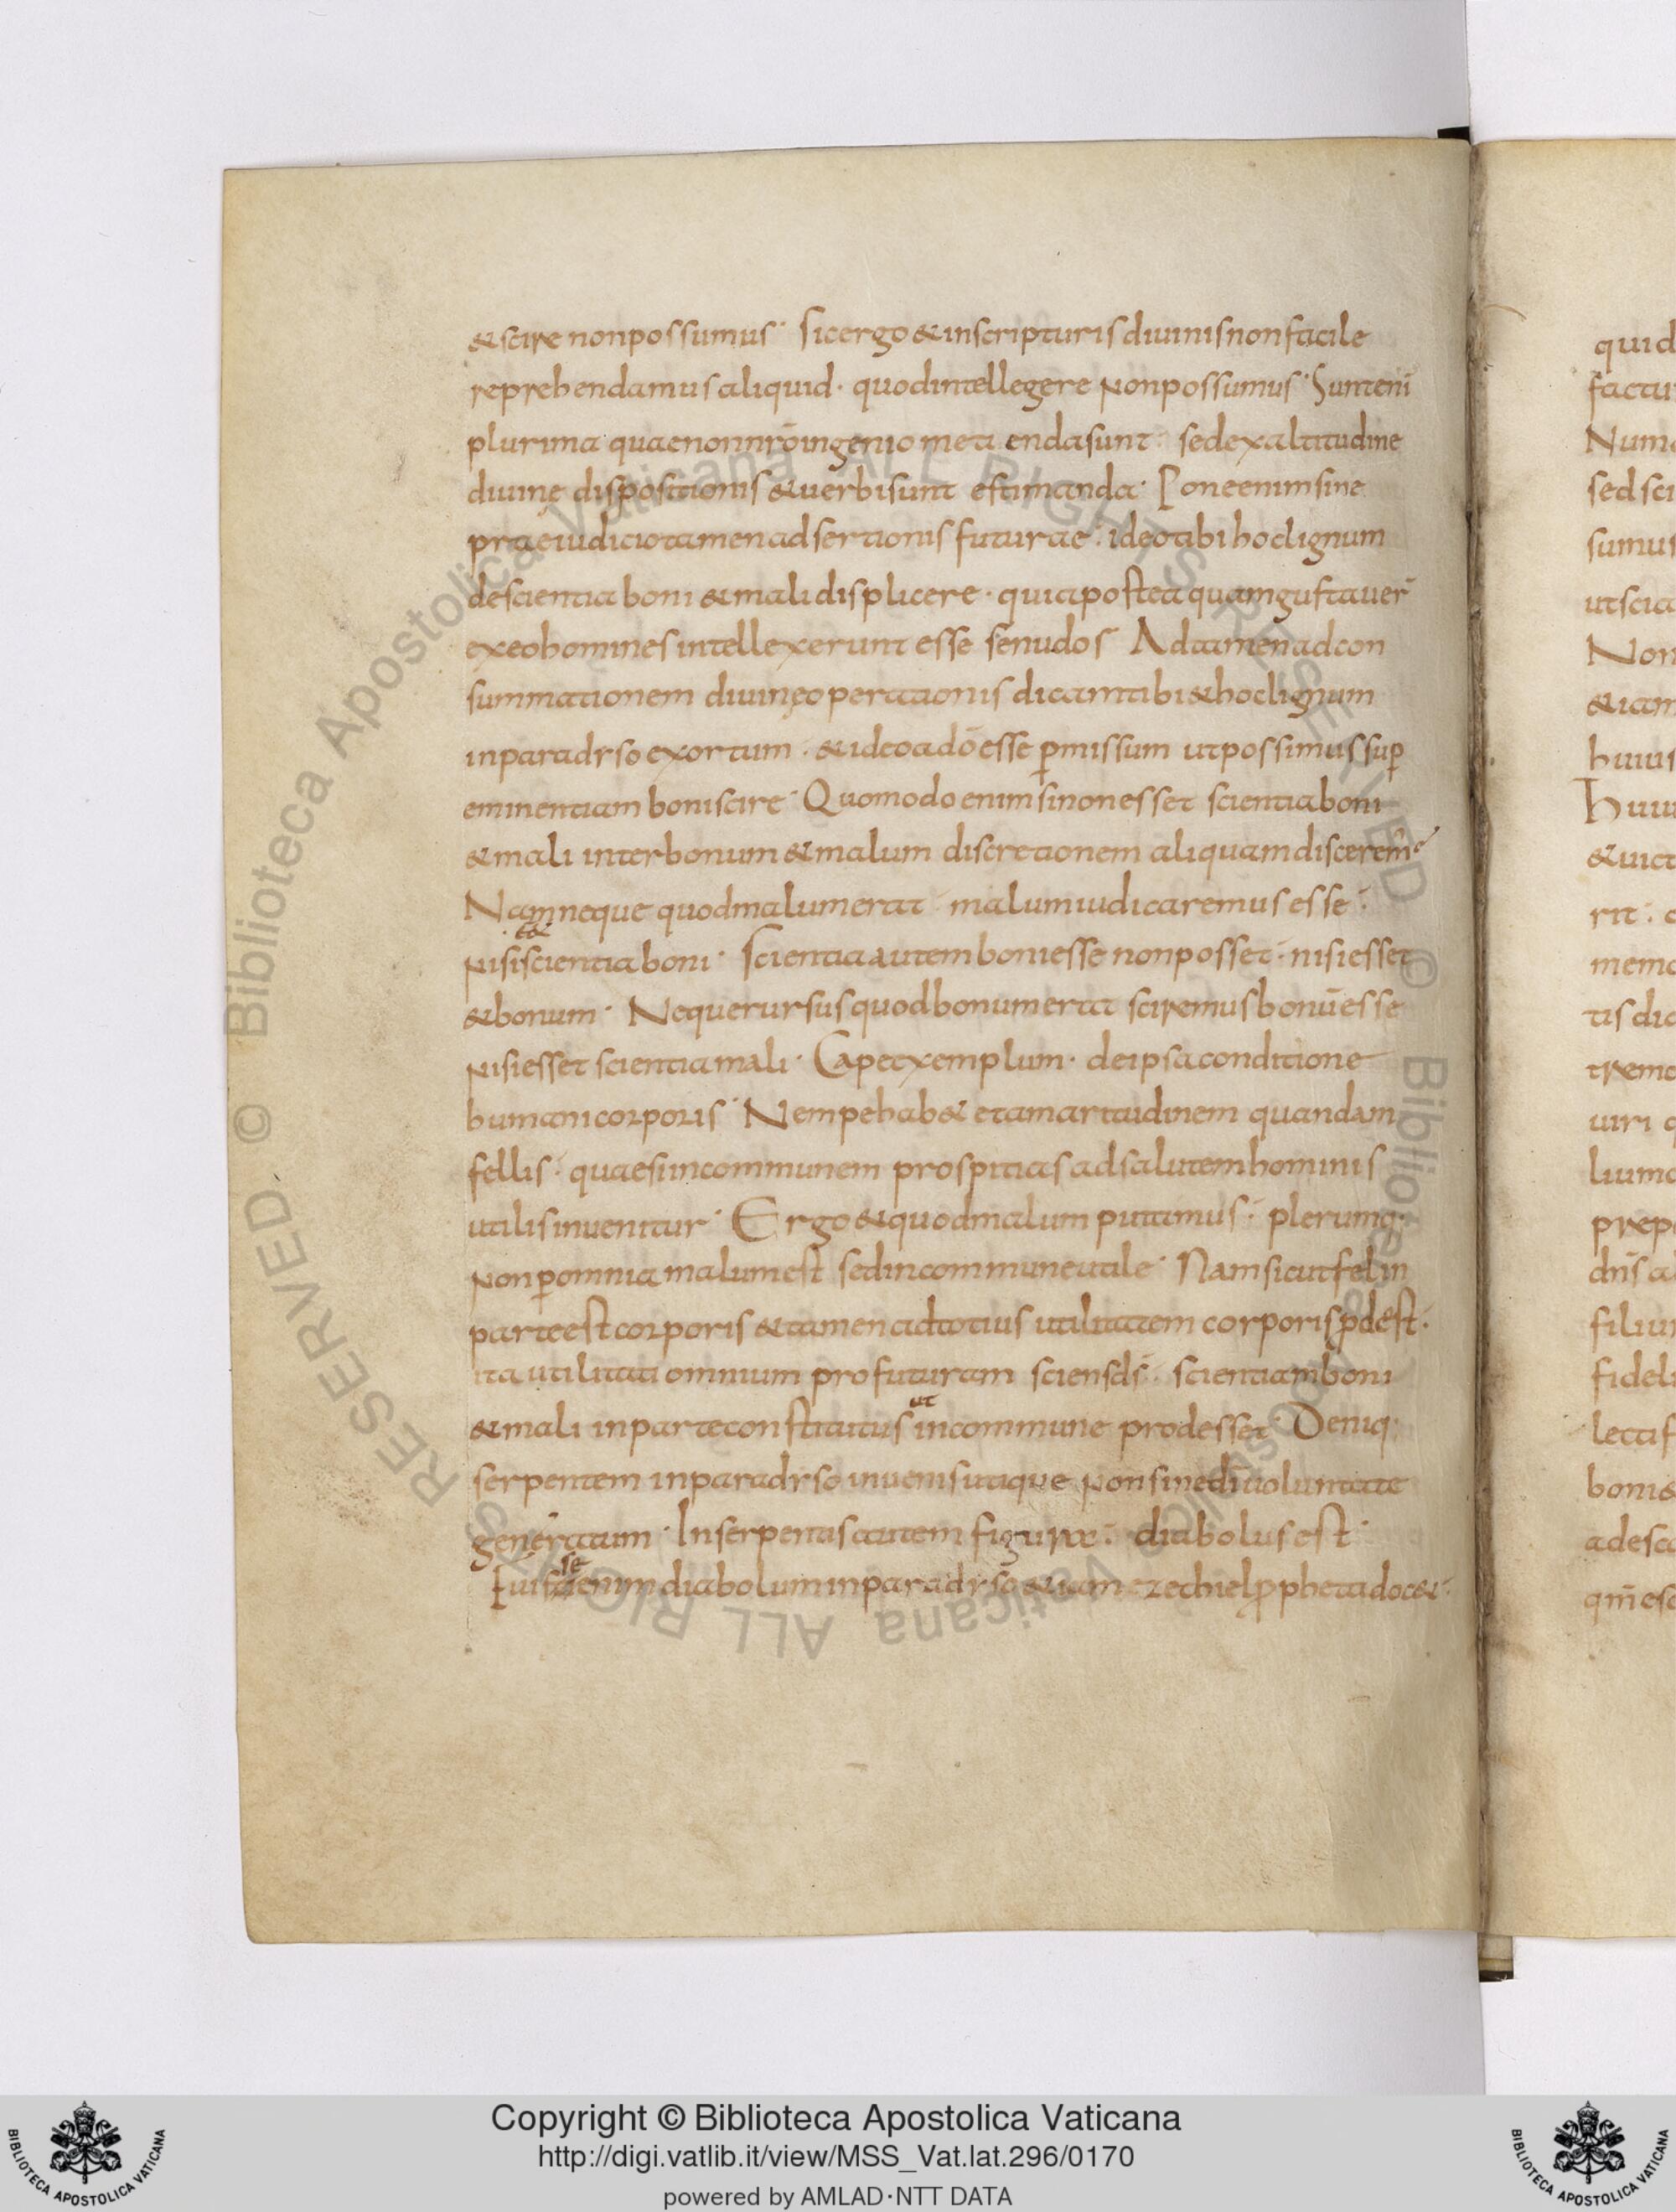 & scire non possumus· Sic ergo & in scripturis diuinis non facile
reprehendamus aliquid· quod intellegere non possumus· Sunt eni̅
plurima quae non nr̅o ingenio meti enda sunt· sed ex altitudine
diuinę dispositionis & uerbi sunt estimanda· Pone enim sine
praeiudicio tamen adsertionis futurae· ideo tibi hoc lignum
de scientia boni & mali displicere· quia postea quam gustauer̅
ex eo homines intellexerunt esse se nudos· Ad tamen ad con
summationem diuinę operationis dicam tibi & hoc lignum
in paradyso exortum· & ideo a do̅ esse p̲missum ut possimus sup̲
eminentiam boni scire· Quomodo enim si non esset scientia boni
& mali inter bonum & malum discretionem aliquam discerem̅
Nam neque quod malum erat malum iudicaremus esse·
ee&
nisi scientia boni· Scientia autem boni esse non posset· nisi esset
& bonum· Neque rursus quod bonum erat sciremus bonu̅ esse
nisi esset scientia mali· Cape exemplum· de ipsa conditione
humani corporis· Nempe hab& et amaritudinem quandam
fellis· quae si in communem prospitias ad salutem hominis
utilis inuenitur· Ergo & quod malum putamus· plerumq·
non p̲ omnia malum est sed in commune utile· Nam sicut fel in
parte est corporis & tamen ad totius utilitatem corporis p̲dest·
ita utilitati omnium profuturam sciens ds̅· scientiam boni
ut
& mali in parte constituit in commune prodesset· Deniq·
serpentem in paradyso inuenis utique non sine di̅ uoluntate
generatum· In serpentis autem figura· diabolus est·
se
Fuis enim diabolum in paradyso &iam ezechiel p̲pheta doc&·
quid
factu
Num
sed sci
sumus
ut scia
Non
& iam
huius
Huiu
& uict
rit·
mem
tis dic
trem
uiri
lium
prep
dn̅s a
filiu
fidel
lectis
boni &
ad esc
qm̅ es
Copyright © Biblioteca Apostolica Vaticana
http://digi.vatlib.it/view/MSS_Vat.lat.296/0170
powered by AMLAD·NTT DATA
BIBLIOTECA APOSTOLICA VATICANA
BIBLIOTECA APOSTOLICA VATICANA
© Biblioteca Apostolica Vaticana ALL RIGHTS RESERVED © Biblioteca Apostolica Vaticana ALL RIGHTS RESERVED